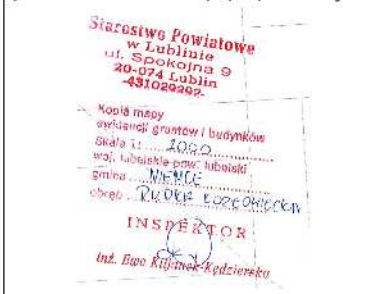 Starostwo Powiatowe
w Lublinie
ul. Spokojna 9
20-074 Lublin
-431029202-
Kopia mapy
ewidencji gruntów i budynków
Skala 1: 1000
woj. lubelskie pow. lubelski
gmina NIEMCE
obręb RUDKA KOZŁOWIECKA
INSPEKTOR
inż. Ewa Kędzierska